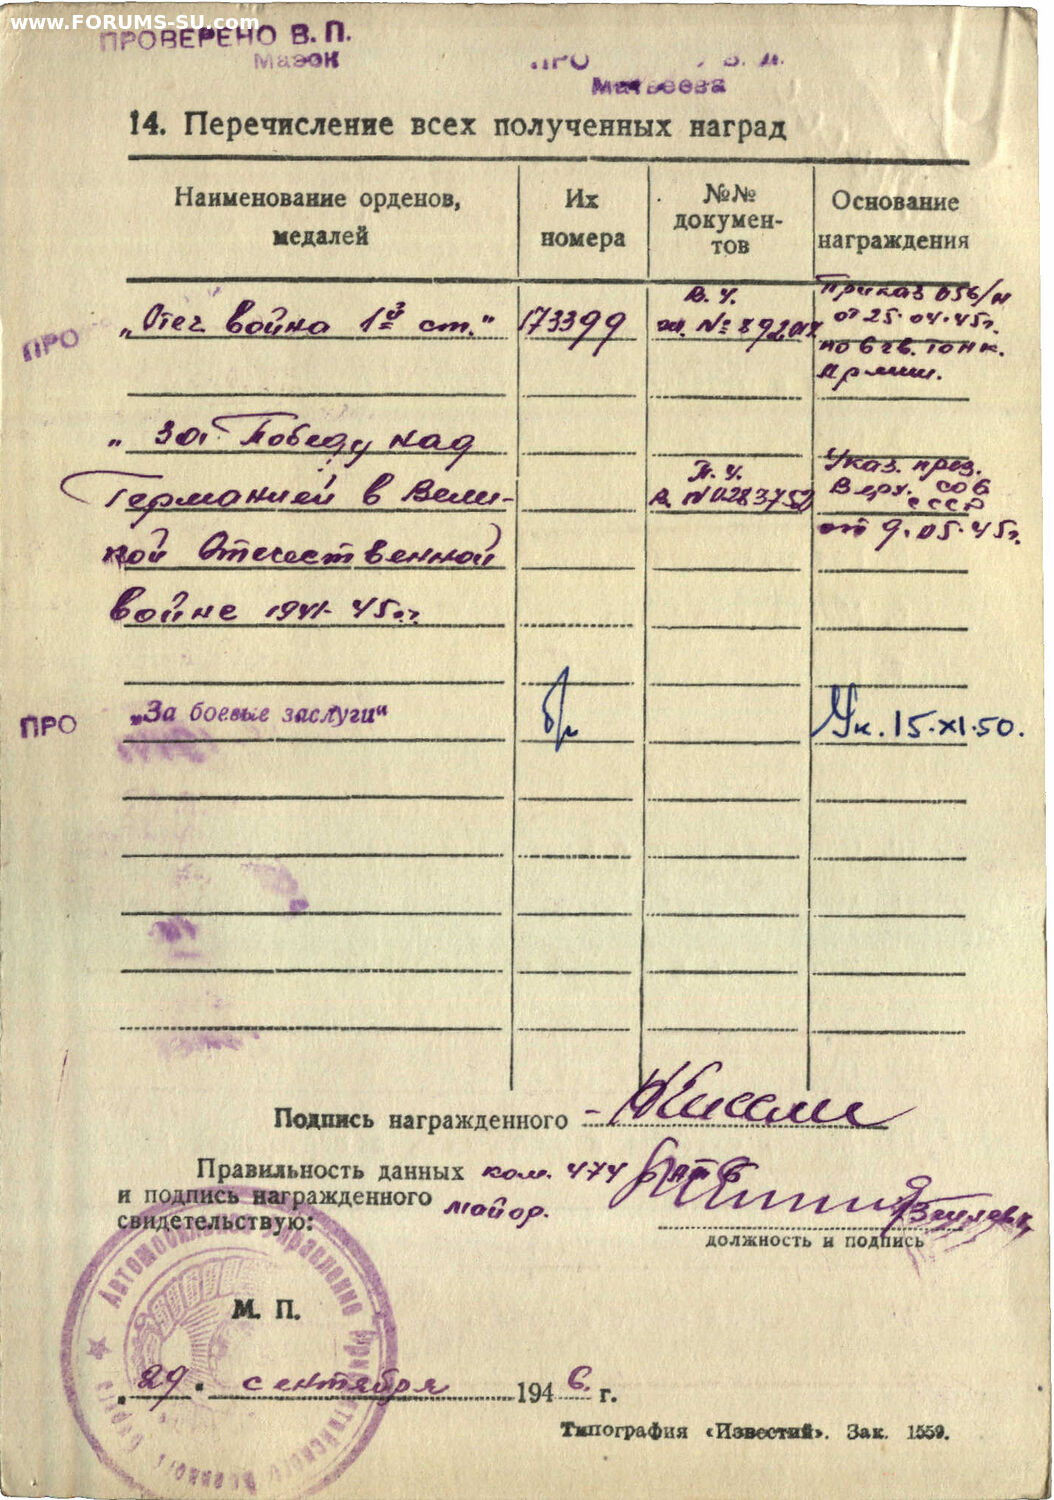 www.FORUMS-SU.com
ПРОВЕРЕНО В. П.
Мазок
ПРО
Матвеева
14. Перечисление всех полученных наград
Наименование орденов, медалей
Их номера
№№ документов
Основание награждения
ПРО
„Отеч война 1й ст."
173399
В. Ч.
Приказ 056/н
от 25.04.45г.
по 6 гв. танк.
Армии.
„За Победу над
Германией в Вели-
кой Отечественной
войне 1941-45гг.
П. Ч.
В №0283752
Указ. през.
Верх. сов
СССР
от 9.05.45г.
ПРО
„За боевые заслуги"
б/н
Ук. 15.XI.50.
Подпись награжденного -
Правильность данных
и подпись награжденного
свидетельствую:
ком. 474
майор.
должность и подпись
Автомобильное Управление
М. П.
„29" сентября 1946 г.
Типография «Известий». Зак. 1559.